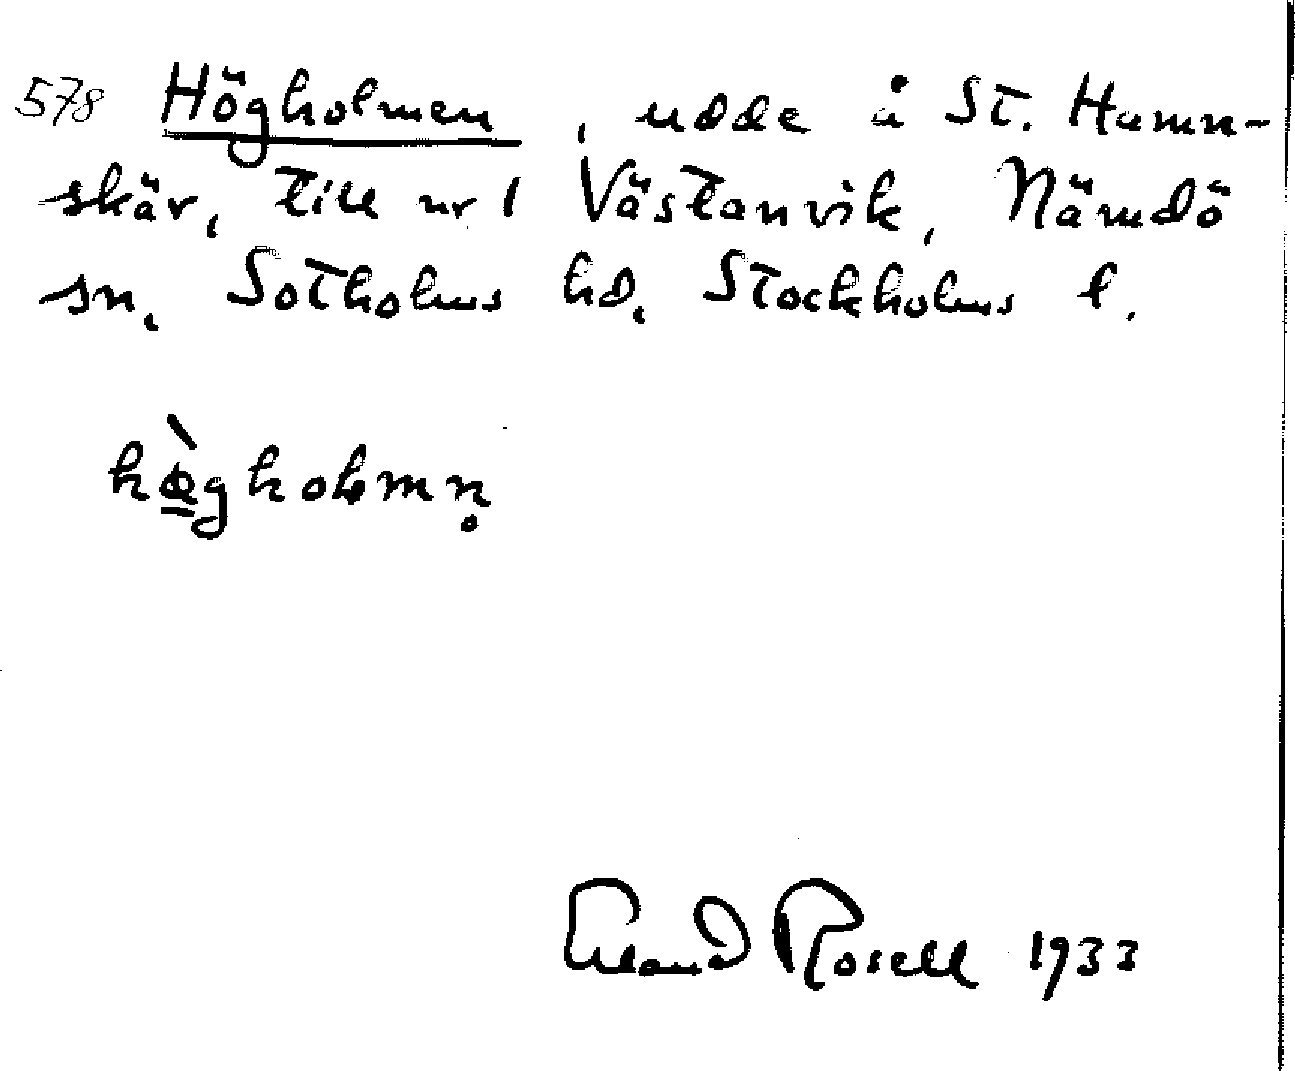 578 Högholmen, udde å St. Hamn-
skär, till nr 1 Västanvik, Nämdö
sn, Sotholms hd, Stockholms l.
hœ̀gholmn̥
Erland Rosell 1933